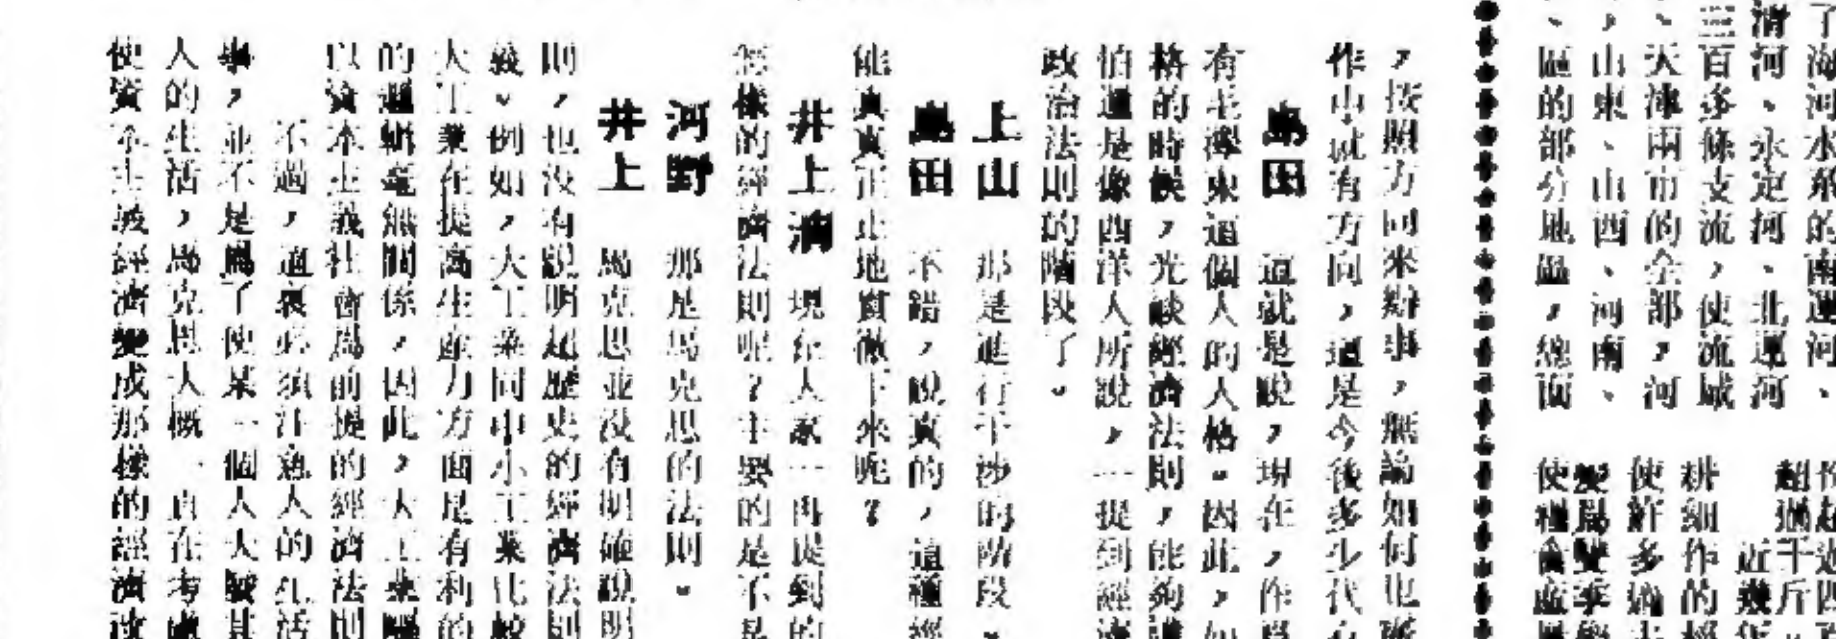 了海河水系的南運河、
清河、永定河、北運河
三百多條支流，使流域
、天津兩市的全部，河
，山東、山西、河南、
、區的部分地區，總面
超過千斤
近幾
耕細作的
使許多
變為雙季
使
，按照方向來辦事，無論如何也
作山就有方向，這是今後多少代
島田　這就是說，現在，作
有毛澤東這個人的人格。因此，如
格的時候，光談經濟法則，能夠
怕還是像西洋人所說，一提到經濟
政治法則的階段了。
上山　那是進行干涉的階段、
島田　不錯，說真的，這種經
能真真正正地貫徹下來呢？
井上清　現在人家一再提到的
怎樣的經濟法則呢？主要的是不是
河野　那是馬克思的法則。
井上　馬克思並沒有明確說明
則，也沒有說明超歷史的經濟法則
義。例如，大工業同中小工業比較
大工業在提高生產力方面是有利的
的邏輯毫無關係，因此，大工業
以資本主義社會爲前提的經濟法則
不過，這裏必須注意人的生活
舉，並不是爲了使某一個人大
人的生活，馬克思大概一直在考慮
使資本主義經濟變成那樣的經濟